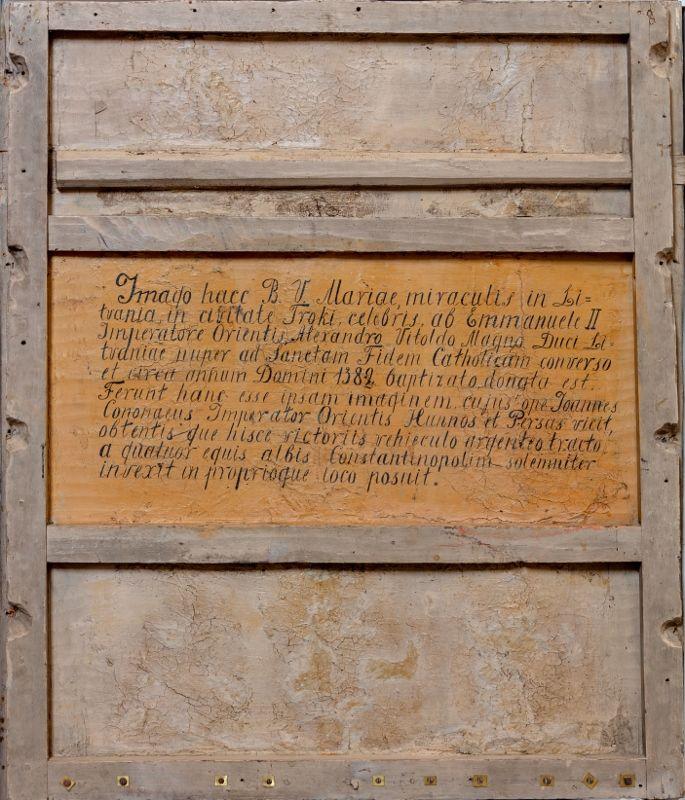 Imago haec B. V. Mariae, miraculis in Li=
tvania, in civitate Troki, celebris, ab Emmanuele II
Imperatore Orientis, Alexandro Vitoldo Magno Duci Li
tvdniae nuper ad Sanctam Fidem Catholicam converso
et circa annum Domini 1382 baptizato, donata est.
Ferunt hanc esse ipsam imaginem, cujus ope Joannes
Cononaeus Imperator Orientis Hunnos et Persas vicit,
obtentis que hisce victoriis vehieculo argenteo tracto
a quatuor equis albis Constantinopolim solemniter
invexit in proprioque loco posuit.